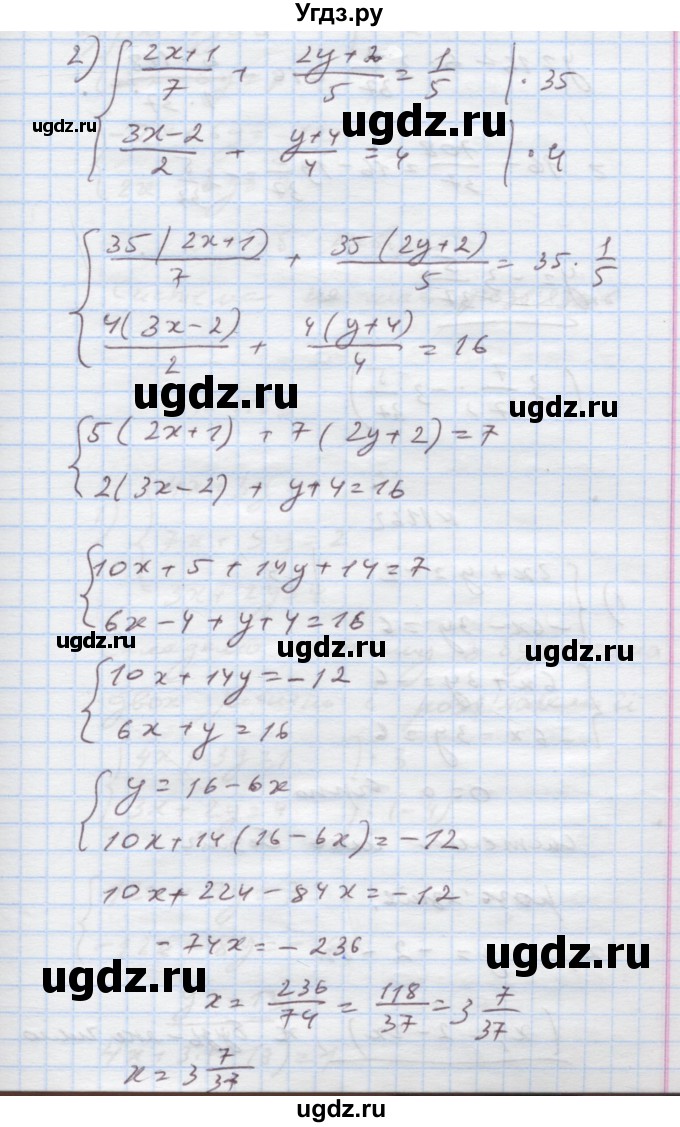 Угдз.ру
2) { (2x+1)/7 + (2y+2)/5 = 1/5 | · 35
ugdz.ru
ugdz.ru
(3x-2)/2 + (y+4)/4 = 4 | · 4
{ 35(2x+1)/7 + 35(2y+2)/5 = 35 · 1/5
4(3x-2)/2 + 4(y+4)/4 = 16
ugdz.ru ugdz.ru
{ 5(2x+1) + 7(2y+2) = 7
2(3x-2) + y+4 = 16
{ 10x+5+14y+14=7
6x-4+y+4=16
ugdz.ru ugdz.ru ugdz.ru
{ 10x+14y=-12
6x+y=16
{ y=16-6x
10x+14(16-6x)=-12
10x+224-84x=-12
-74x=-236
ugdz.ru ugdz.ru ugdz.ru
x = 236/74 = 118/37 = 3 7/37
x = 3 7/37
ugdz.ru